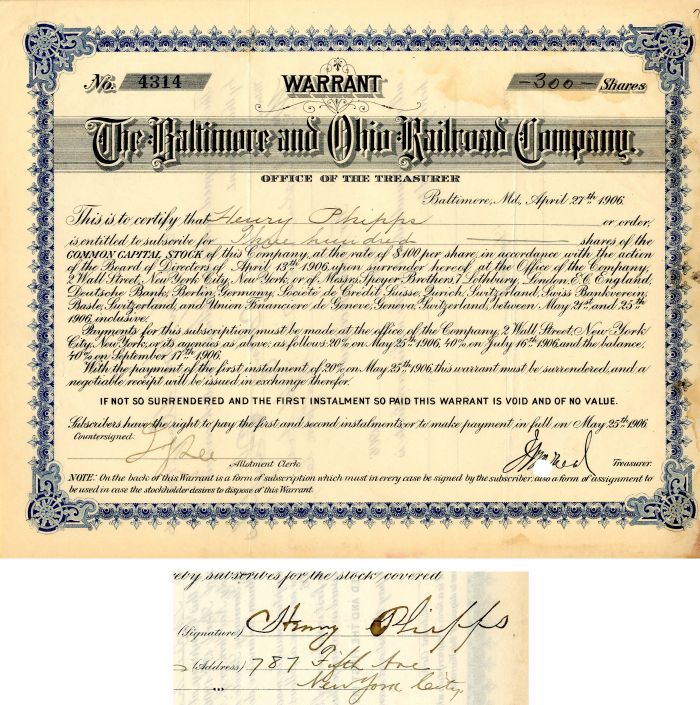 No. 4314
WARRANT
-300- Shares
The Baltimore and Ohio Railroad Company.
OFFICE OF THE TREASURER
Baltimore, Md., April 27th 1906.
This is to certify that Henry Phipps or order,
is entitled to subscribe for Three hundred shares of the
COMMON CAPITAL STOCK of this Company, at the rate of $100 per share, in accordance with the action
of the Board of Directors of April 13th 1906, upon surrender hereof, at the Office of the Company,
2 Wall Street, New York City, New York, or of Messrs. Speyer Brothers, 7 Lothbury, London, E.C. England,
Deutsche Bank, Berlin, Germany, Societe de Credit Suisse, Zurich, Switzerland, Swiss Bankverein,
Basle, Switzerland, and Union Financiere de Geneve, Geneva, Switzerland, between May 21st and 25th
1906, inclusive.
Payments for this subscription must be made at the office of the Company, 2 Wall Street, New York
City, New York, or its agencies as above, as follows: 20% on May 25th 1906, 40% on July 16th 1906, and the balance,
40% on September 17th 1906.
With the payment of the first instalment of 20% on May 25th 1906, this warrant must be surrendered, and a
negotiable receipt will be issued in exchange therefor.
IF NOT SO SURRENDERED AND THE FIRST INSTALMENT SO PAID THIS WARRANT IS VOID AND OF NO VALUE.
Subscribers have the right to pay the first and second instalments, or to make payment in full, on May 25th 1906.
Countersigned:
Allotment Clerk.
Treasurer.
NOTE: On the back of this Warrant is a form of subscription which must in every case be signed by the subscriber, also a form of assignment to
be used in case the stockholder desires to dispose of this Warrant.
eby subscribes for the stock covered
(Signature) Henry Phipps
(Address) 787 Fifth Ave
New York City